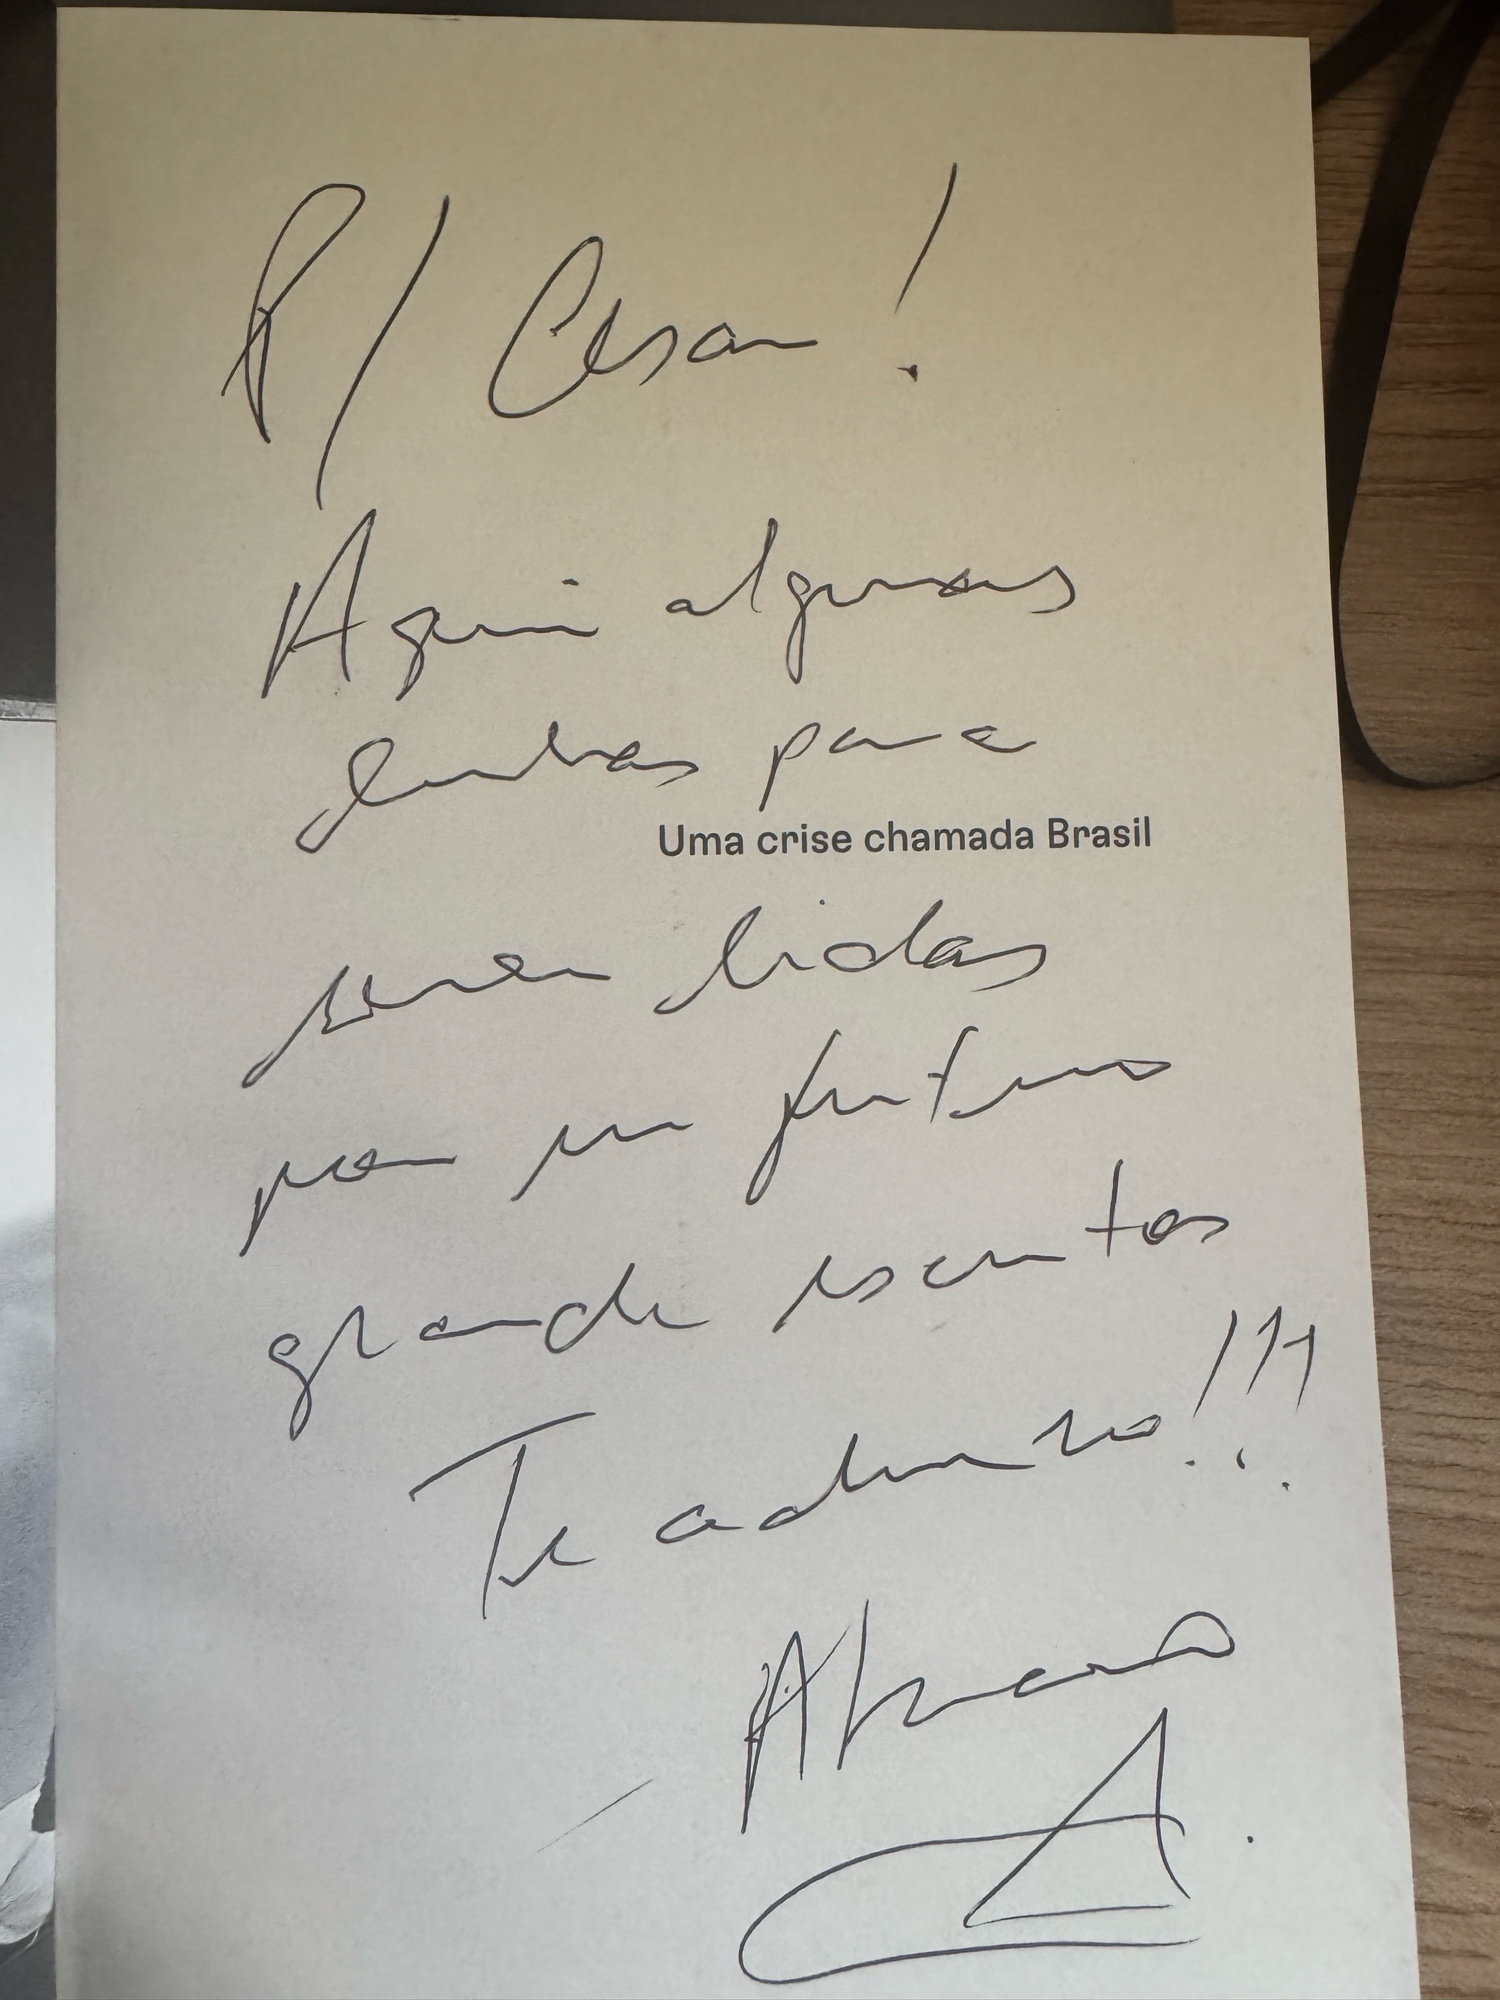 P/ Cesar!
Aqui algumas
linhas para
Uma crise chamada Brasil
serem lidas
por um futuro
grande escritor
Te admiro!!!